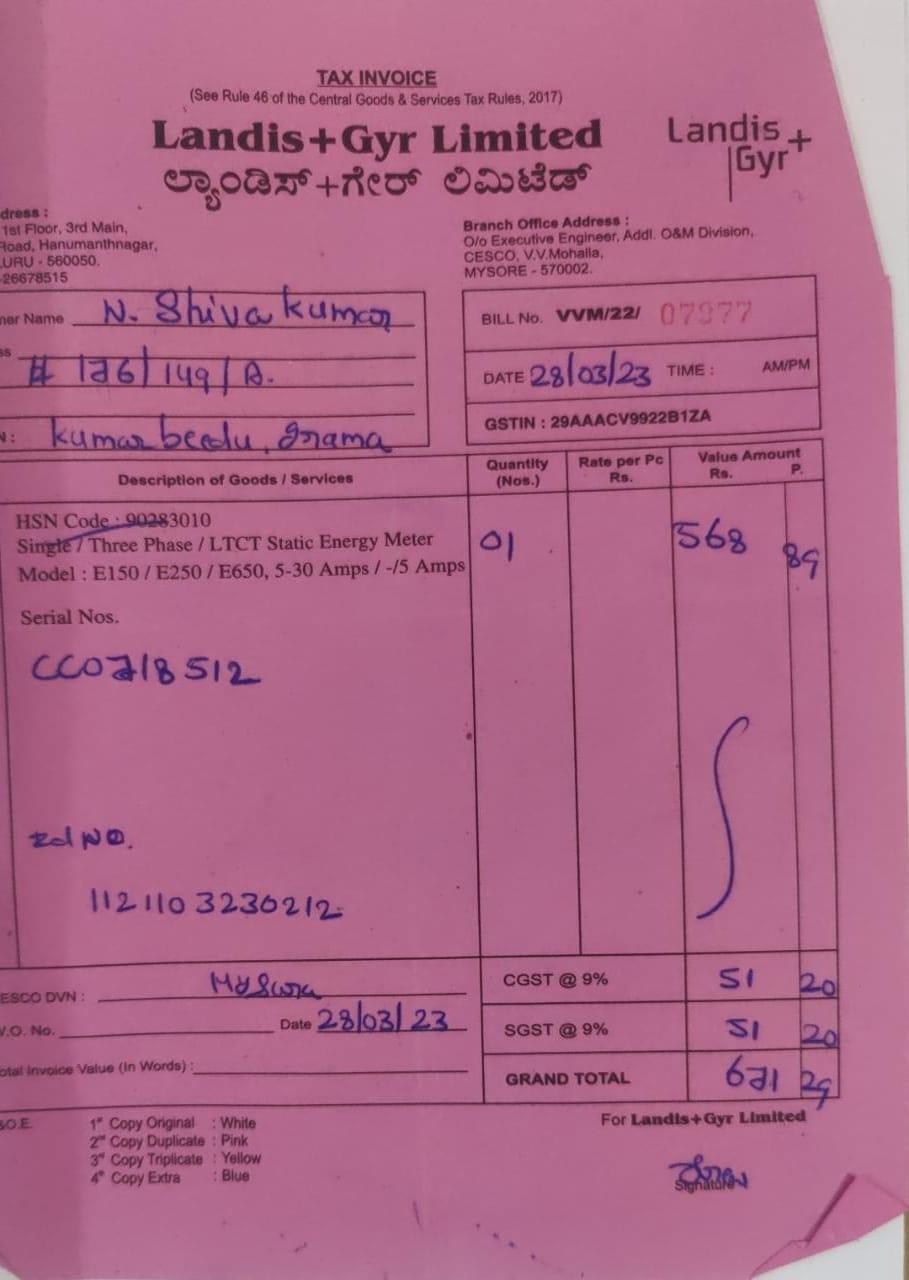 TAX INVOICE
(See Rule 46 of the Central Goods & Services Tax Rules, 2017)
Landis+Gyr Limited
ಲ್ಯಾಂಡಿಸ್+ಗೇರ್ ಲಿಮಿಟೆಡ್
Landis
Gyr+
dress :
1st Floor, 3rd Main,
Road, Hanumanthnagar,
URU - 560050.
26678515
Branch Office Address :
O/o Executive Engineer, Addl. O&M Division,
CESCO, V.V.Mohalla,
MYSORE - 570002.
mer Name N. Shiva kumar
ss # 176/149/B.
N : kumar beedu, grama
BILL No. VVM/22/ 07977
DATE 28/03/23 TIME : AM/PM
GSTIN : 29AAACV9922B1ZA
Description of Goods / Services Quantity (Nos.) Rate per Pc Rs. Value Amount Rs. P.
HSN Code : 90283010
Single / Three Phase / LTCT Static Energy Meter 01 568 89
Model : E150 / E250 / E650, 5-30 Amps / -/5 Amps
Serial Nos.
CC0718512
Rd No.
1121103230212
ESCO DVN : Mysore CGST @ 9% 51 20
V.O. No. Date 28/03/23 SGST @ 9% 51 20
otal Invoice Value (In Words) : GRAND TOTAL 671 29
S.O.E. 1st Copy Original : White
2nd Copy Duplicate : Pink
3rd Copy Triplicate : Yellow
4th Copy Extra : Blue
For Landis+Gyr Limited
Signature